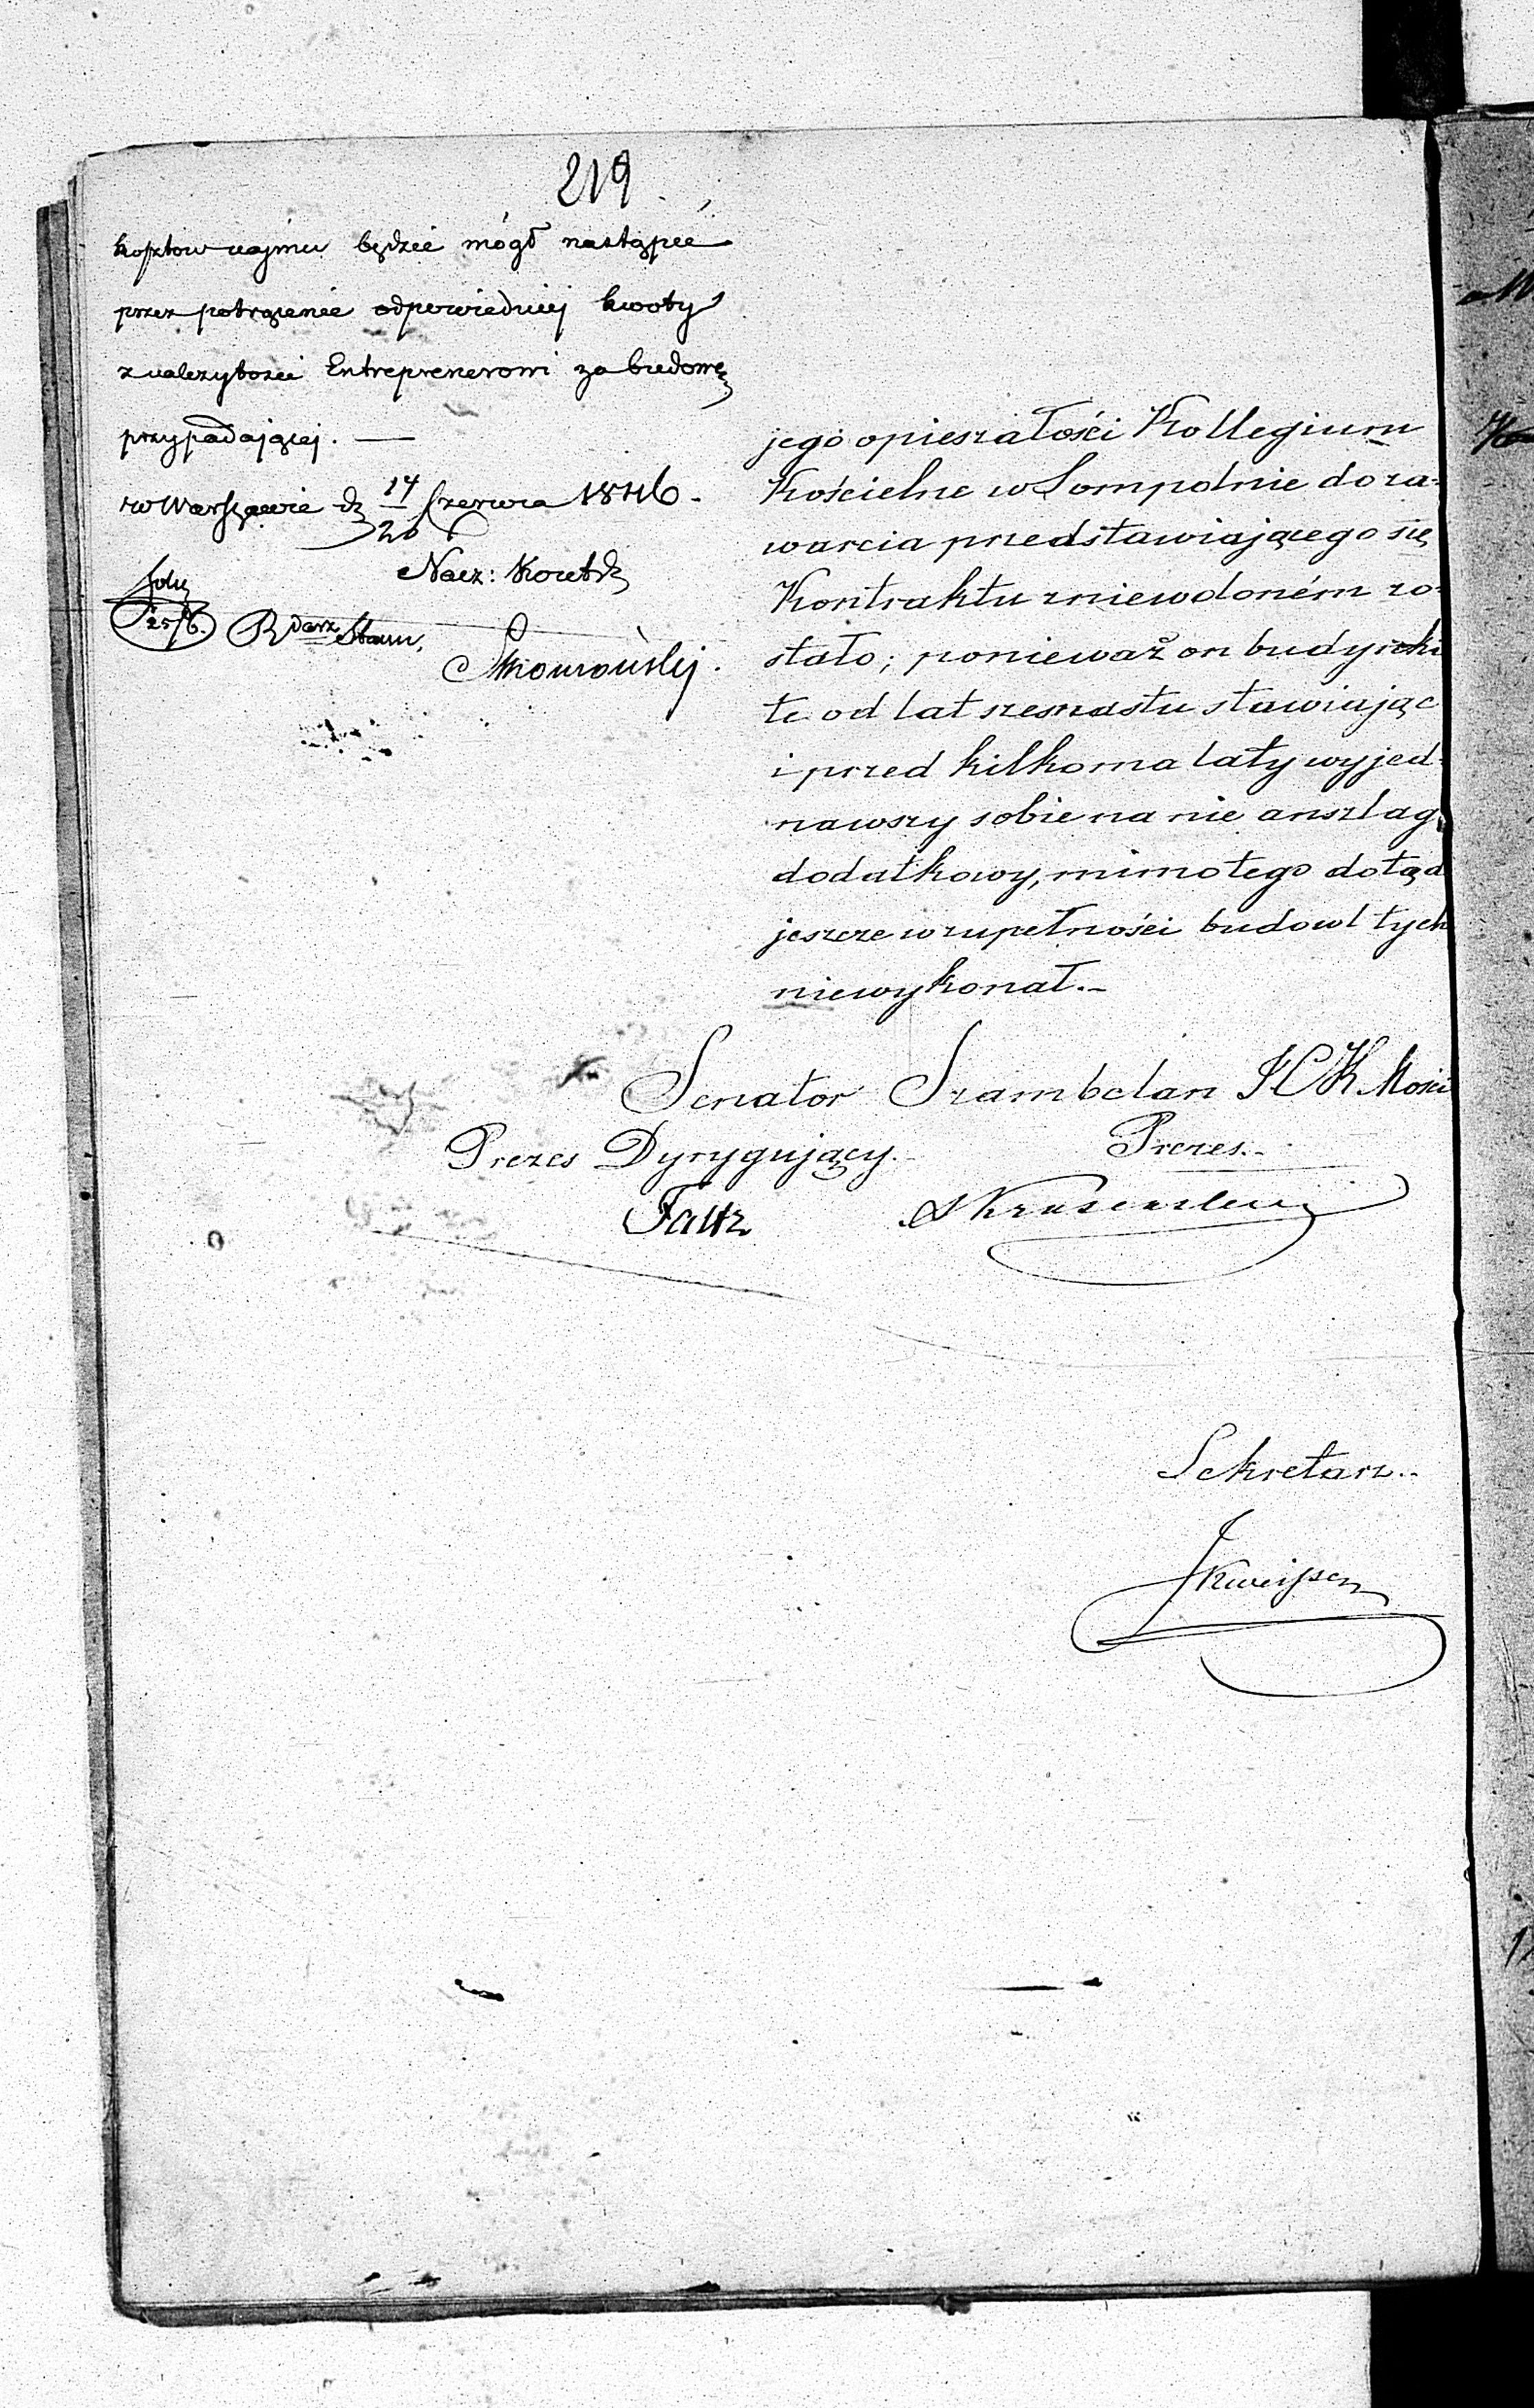 219
kosztów najmu będzie mógł nastąpić
przez potrącenie odpowiedniej kwoty
z należytości Entreprenerowi za budowę
przypadającej. —
w Warszawie d. 14/26 Czerwca 1846.
Nacz:
25/6.
Skowroński.
jego opieszałości Kollegium
Kościelne w Sompolnie do za-
warcia przedstawiającego się
Kontraktu zniewoloném zo-
stało; ponieważ on budynki
te od lat szesnastu stawiając
i przed kilkoma laty wyjed-
nawszy sobie na nie anszlag
dodatkowy, mimo tego dotąd
jeszcze w zupełności budowl tych
niewykonał.-
Senator Szambelan JCK Mości
Prezes Dyrygujący. Prezes.-
Sekretarz..